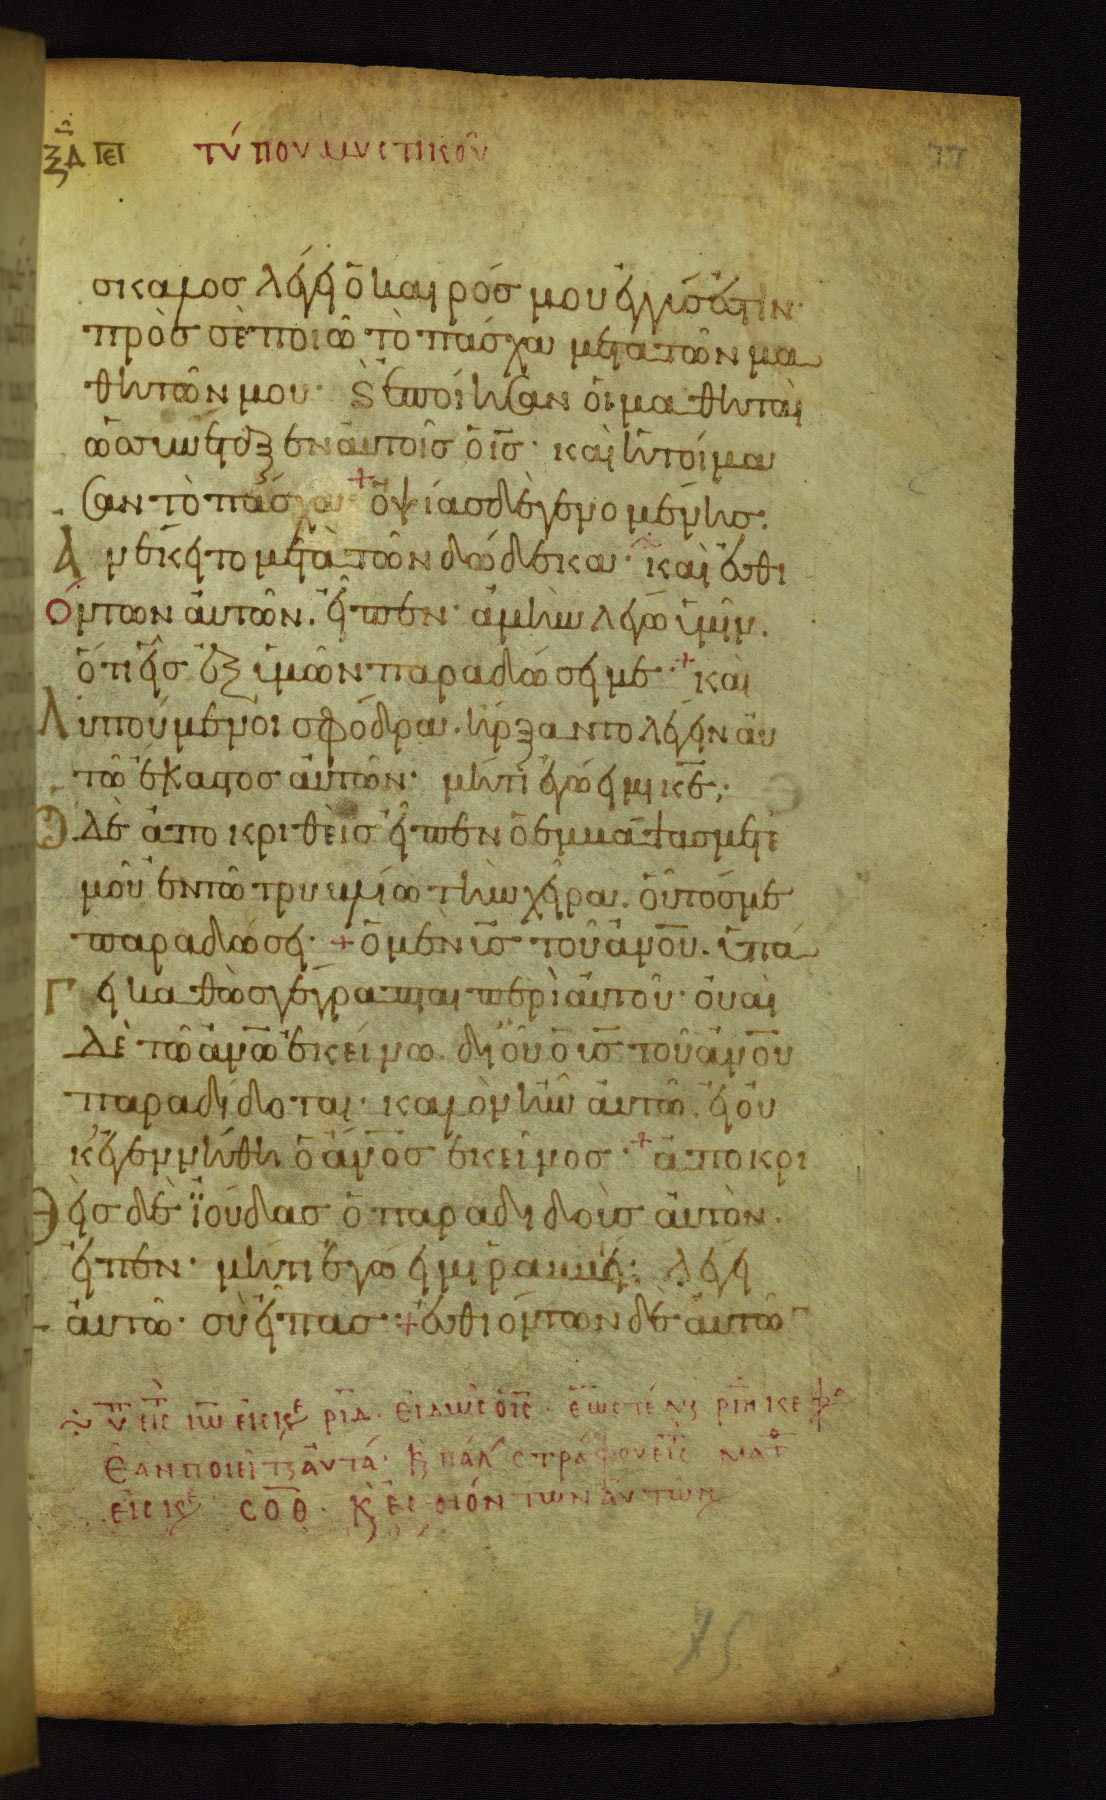 ξ̅δ̅ περὶ τύπου μυστικοῦ 77
σκαλος λέγει ὁ καιρός μου ἐγγύς ἐστιν·
πρὸς σὲ ποιῶ τὸ πάσχα μετὰ τῶν μα
θητῶν μου· καὶ ἐποίησαν οἱ μαθηταὶ
ὡς συνέταξεν αὐτοῖς ὁ ι̅ς̅· καὶ ἡτοίμα
σαν τὸ πάσχα· + ὀψίας δὲ γενομένης·
Ἀνέκειτο μετὰ τῶν δώδεκα· καὶ ἐσθι
όντων αὐτῶν. εἶπεν· ἀμὴν λέγω ὑμῖν.
ὅτι εἷς ἐξ ὑμῶν παραδώσει με· + καὶ
Λυπούμενοι σφόδρα. ἤρξαντο λέγειν αὐ
τῶ ἕκαστος αὐτῶν· μήτι ἐγώ εἰμι κ̅ε̅;
Ὁ δὲ ἀποκριθεὶς εἶπεν ὁ ἐμβάψας μετ'
ἐμοῦ ἐν τῶ τρυβλίω τὴν χεῖρα. οὗτός με
παραδώσει· + ὁ μὲν υ̅ς̅ τοῦ α̅ν̅ο̅υ̅. ὑπά
Γει καθὼς γέγραπται περὶ αὐτοῦ· οὐαὶ
δὲ τῶ α̅ν̅ω̅ ἐκείνω. δι' οὗ ὁ υ̅ς̅ τοῦ α̅ν̅ο̅υ̅
παραδίδοται· καλὸν ἦν αὐτῶ. εἰ οὐ
κ ἐγεννήθη ὁ α̅ν̅ο̅ς̅ ἐκεῖνος· + ἀποκρι
Θεὶς δὲ ἰούδας ὁ παραδιδοὺς αὐτὸν.
εἶπεν· μήτι ἐγώ εἰμι ῥαββί; λέγει
αὐτῶ· σὺ εἶπας· + ἐσθιόντων δὲ αὐτῶ
εἰς ι̅ω̅ εἰς κε ρ̅ι̅δ̅. εἰδὼς ὁ ι̅ς̅· ἕως τέλους ρ̅ι̅η̅
ἐὰν ποιεῖτε αὐτά· καὶ πάλιν στράφου εἰς ματθ
εἰς κε σ̅ο̅θ̅. καὶ ἐσθιόντων αὐτῶν
75